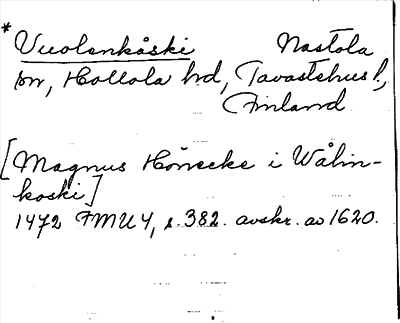 * Vuolenkoski Nastola
sn, Hollola hd, Tavastehus l.,
Finland
[Magnus Hönecke i Wålin-
koski]
1472 FMU 4, s. 382. avskr. av 1620.